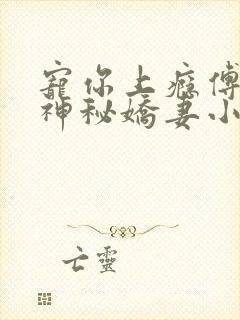 寵你上癮傅
神秘嬌妻小
亡靈